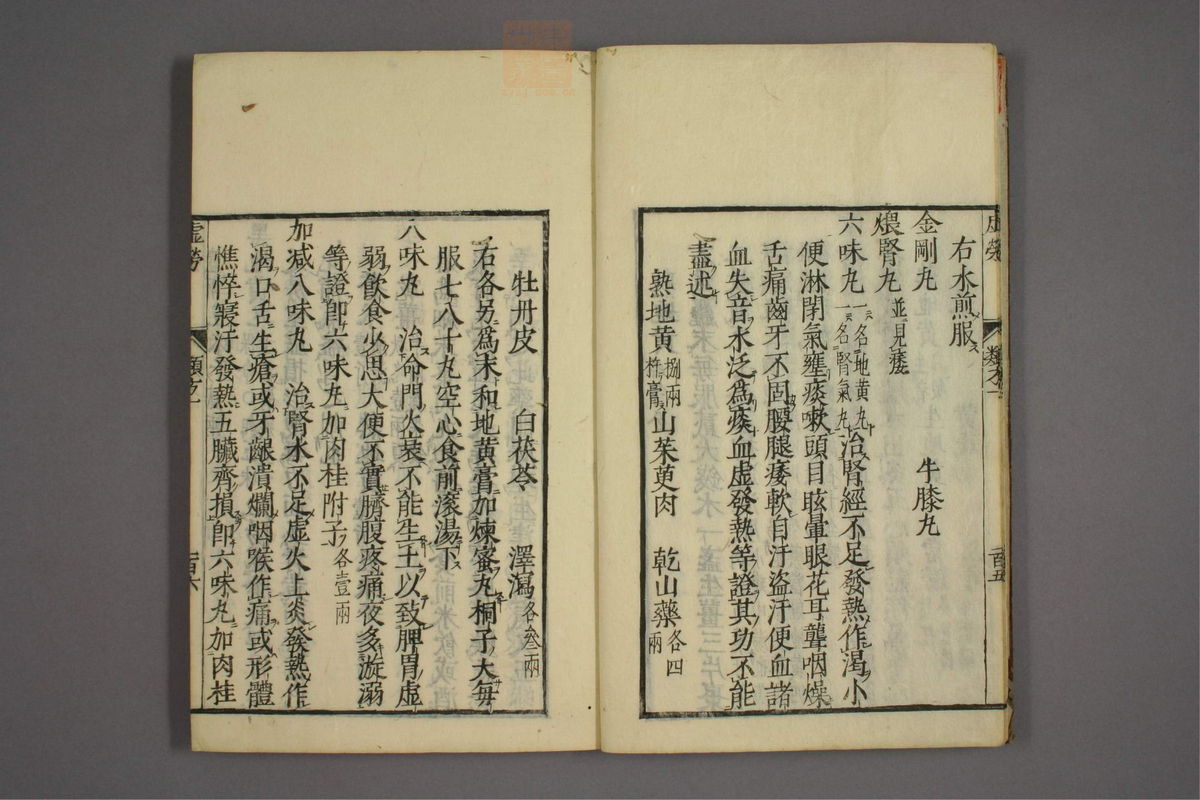 虛勞 類方一 一百五
右水煎服
金剛丸 牛膝丸
煨腎丸 並見痿
六味丸 一名地黄丸一名腎氣丸 治腎經不足發熱作渴小
便淋閉氣壅痰嗽頭目眩暈眼花耳聾咽燥
舌痛齒牙不固腰腿痿軟自汗盜汗便血諸
血失音水泛爲痰血虛發熱等證其功不能
盡述
熟地黄 捌兩杵膏 山茱萸肉 乾山藥 各四兩
牡丹皮 白茯苓 澤瀉 各叁兩
右各另爲末和地黄膏加煉蜜丸桐子大每
服七八十丸空心食前滚湯下
八味丸 治命門火衰不能生土以致脾胃虛
弱飲食少思大便不實臍腹疼痛夜多漩溺
等證卽六味丸加肉桂附子 各壹兩
加減八味丸 治腎水不足虛火上炎發熱作
渴口舌生瘡或牙齦潰爛咽喉作痛或形體
憔悴寢汗發熱五臟齊損卽六味丸加肉桂
虛勞 類方一 一百六